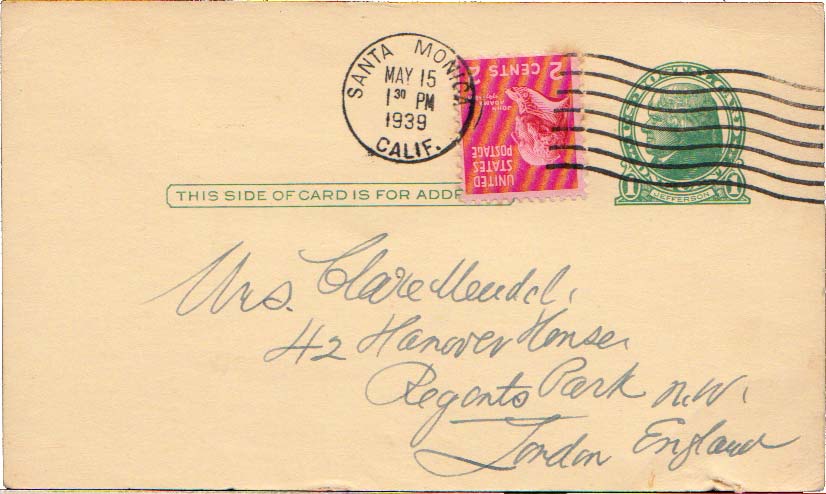 SANTA MONICA
MAY 15
1 30 PM
1939
CALIF.
2 CENTS 2
JOHN ADAMS
UNITED
STATES
POSTAGE
1 JEFFERSON 1
THIS SIDE OF CARD IS FOR ADDRE
Mrs. Clare Mendel.
42 Hanover House.
Regents Park N.W.
London England